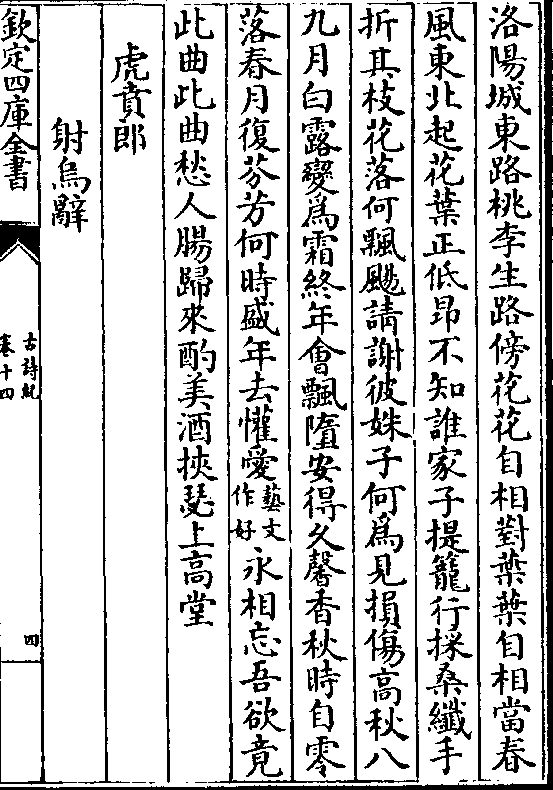 洛陽城東路桃李生路傍花花自相對葉葉自相當春
風東北起花葉正低昂不知誰家子提籠行採桑纎手
折其枝花落何飄颺請謝彼姝子何爲見損傷髙秋八
九月白露變爲霜終年會飄墮安得久馨香秋時自零
落春月復芬芳何時盛年去懽愛藝文作好永相忘吾欲竟
此曲此曲愁人腸歸來酌美酒挾瑟上髙堂
虎賁郎
射烏辭
欽定四庫全書
古詩紀
卷十四
四